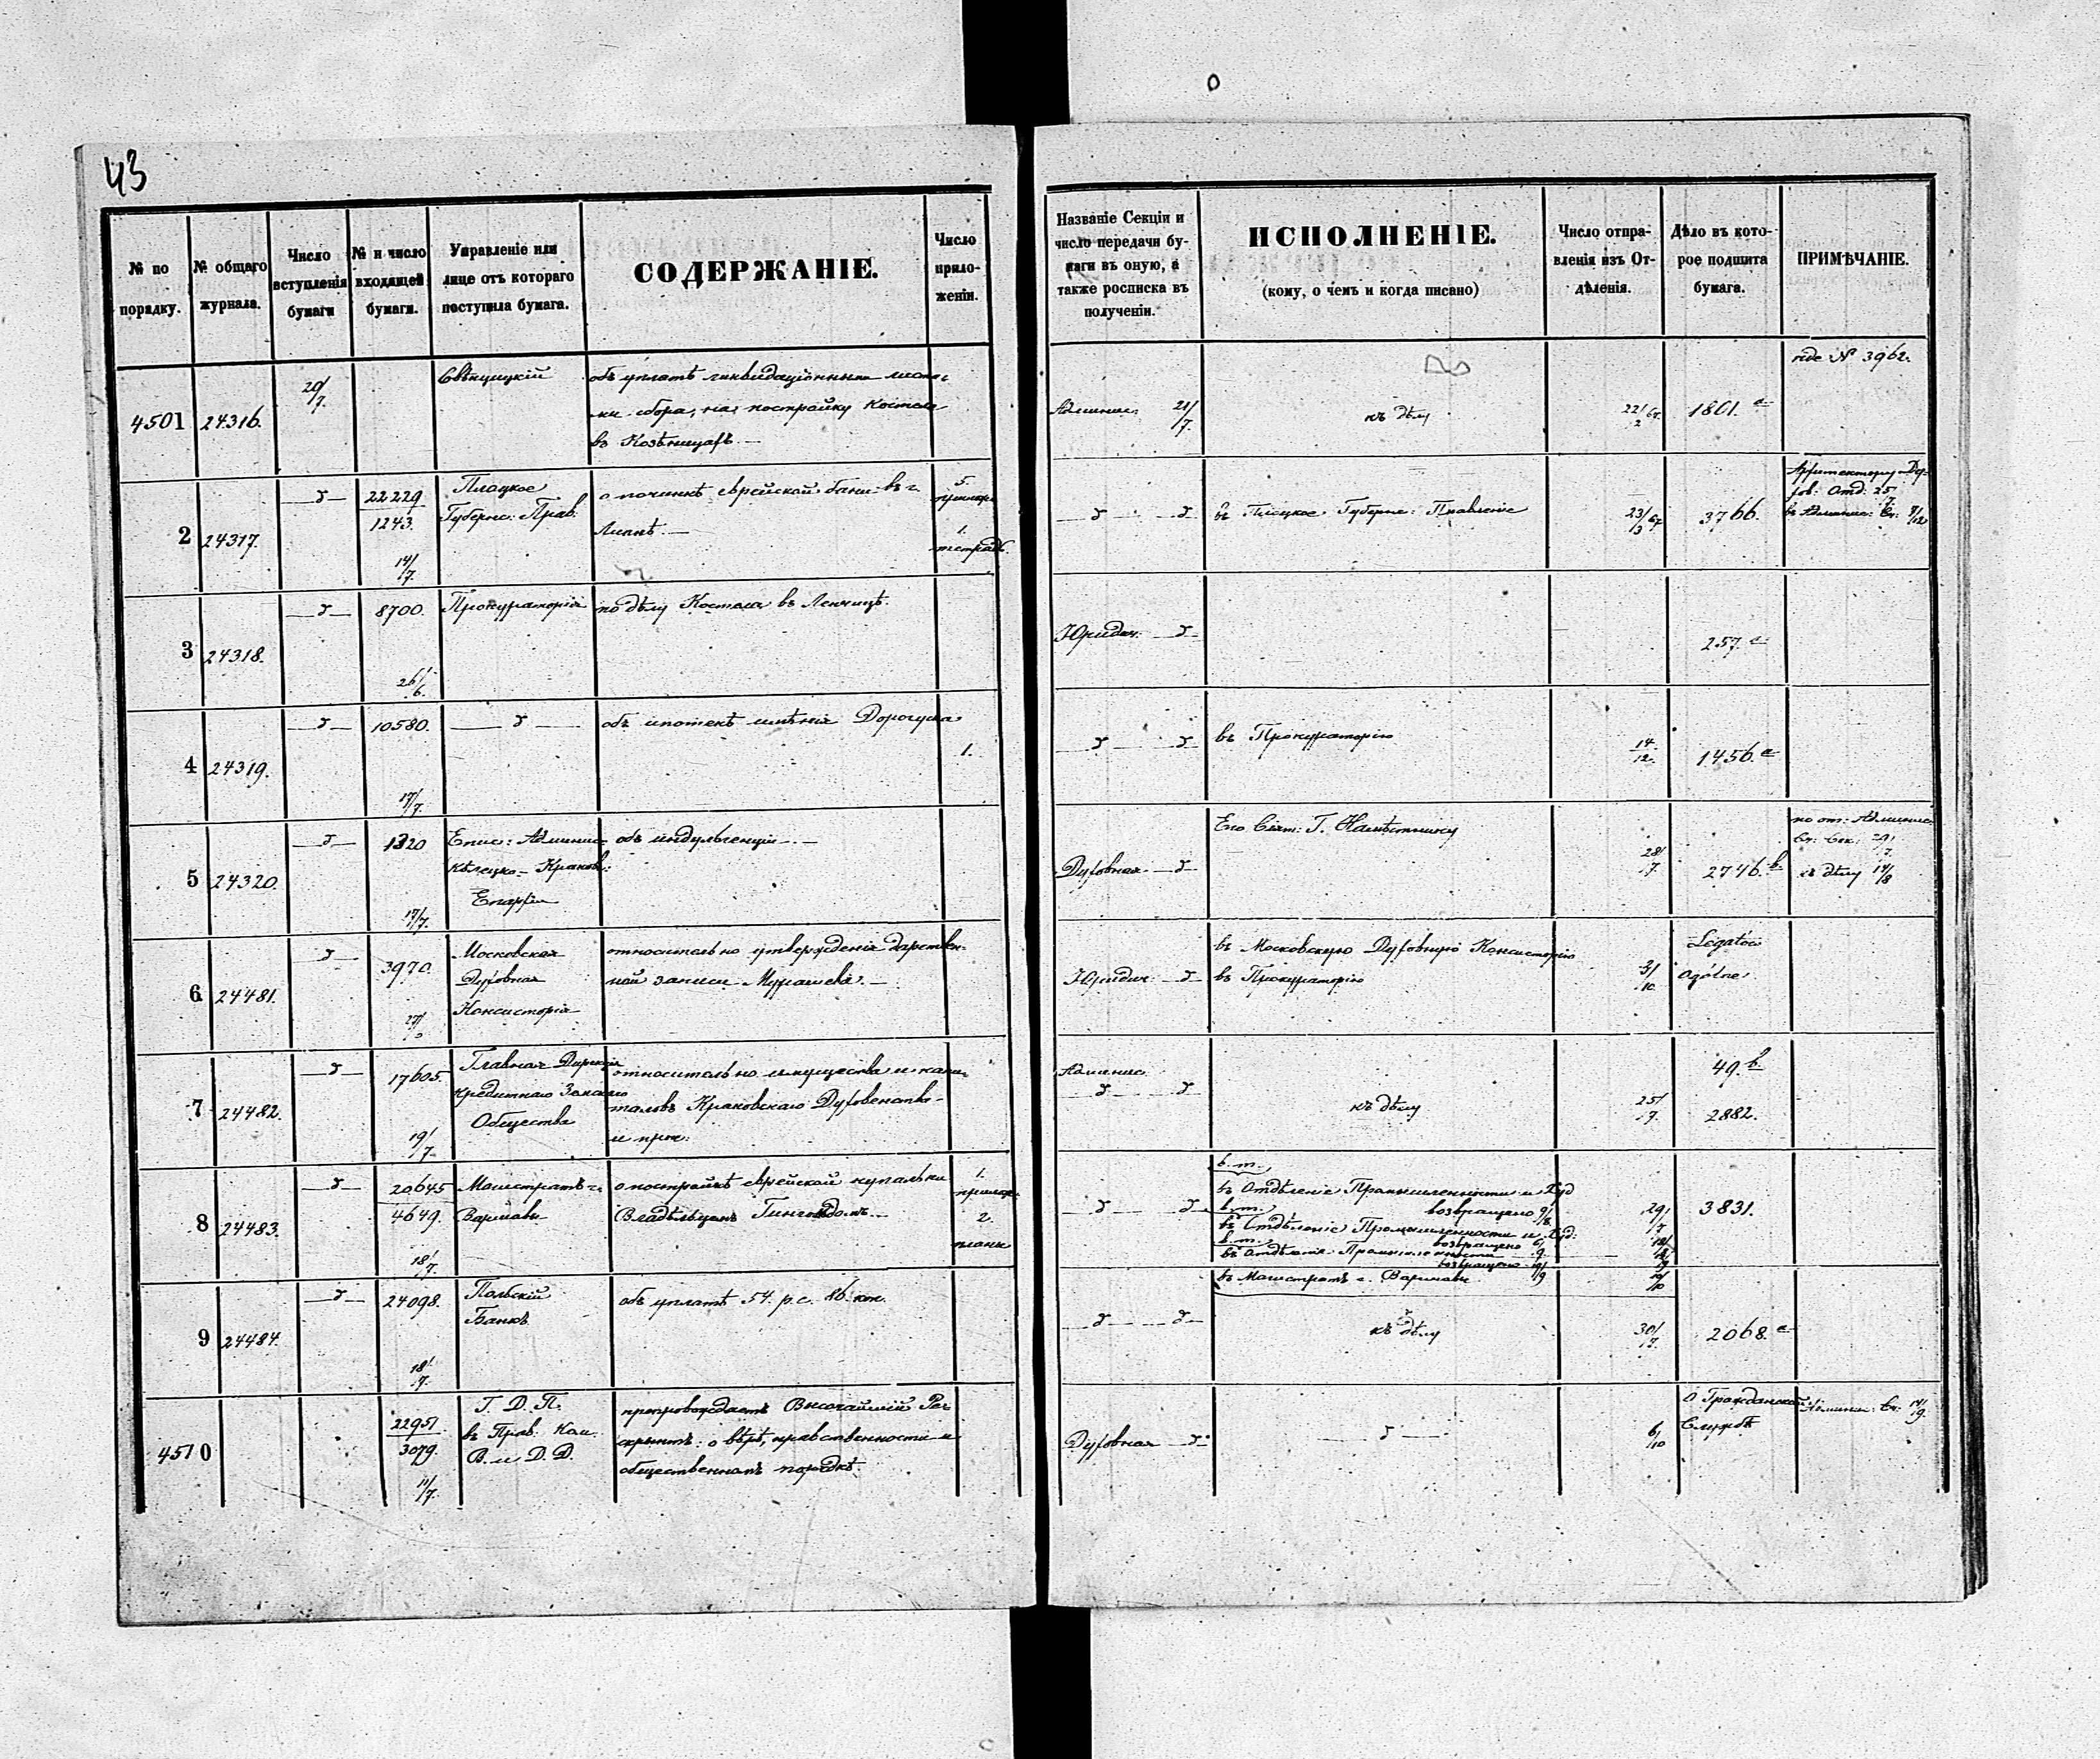 43
№ по порядку.
№ общаго журнала.
Число вступленія бумаги
№ и число входящей бумаги.
Управленіе или лице отъ котораго поступила бумага.
СОДЕРЖАНІЕ.
Число приложеніи.
Названіе Секціи и число передачи бумаги въ оную, а также росписка въ полученіи.
ИСПОЛНЕНІЕ.
(кому, о чемъ и когда писано)
Число отправленія изъ Отдѣленія.
Дѣло въ которое подшита бумага.
ПРИМѢЧАНІЕ.
4501 24316. 20/7.
объ уплатѣ ликвидаціонными
сбора, на постройку Костела
въ Козѣницахъ.
Админис. 21/7.
къ дѣлу
1801. a
№ 3962.
2 24317. 22229
1243.
14/7.
Плоцкое
Губернс: Прав.
о починкѣ еврейской бани въ г.
Липнѣ.
5.
1.
тетрадь
въ Плоцкое Губерн: Правленіе
23/3 67
3766.
3 24318. 8700.
26/6.
Прокураторія
по дѣлу Костела въ Ленчицѣ.
Юридич.
257. a
4 24319. 10580.
17/7.
объ ипотекѣ имѣнія Дорогуска
1.
въ Прокураторію
14
12.
1456. a
5 24320. 1320
17/7.
Епис: Админис:
Кѣлецко-Краков:
Епархіи
объ индульгенціи.
Духовная
Его Сіят: Г. Намѣстнику
28/7.
2746. b.
къ дѣлу 14/8
6 24481. 3970.
Московская
Духовная
Консисторія
относительно утвержденія дарствен-
ной записи Мурашева.
Юридич.
въ Московскую Духовную Консисторію
въ Прокураторію
3/10
Legatów
Ogólne
7 24482. 17605.
19/7.
Главная Дирекція
Кредитнаго Земскаго
Общества
относительно имущества и капи-
таловъ Краковскаго Духовенства
и проч.
Админис.
къ дѣлу
25/7.
49. b.
2882.
8 24483. 20645
4649.
18/7.
Магистратъ г.
Варшавы
о постройкѣ еврейской купальни
Владѣльцемъ
1.
2.
планы
в. т.
въ Отдѣленіе Промышленности и Куд
в. т. возвращено 9/8
въ Отдѣленіе Промышленности и Куд:
в. т. возвращено
въ Отдѣленіе Промышленности
возвращено
въ Магистратъ г. Варшавы
29/7
3831.
9 24484. 24098.
18/7.
Польскій
Банкъ
объ уплатѣ 54. р. с. 86. коп.
къ дѣлу
30/7.
2068. a
4510 22951
3079.
11/7.
Г. Д. П.
въ Прав. Ком.
В. и Д. Д.
препровождаетъ Высочайшій Рес-
криптъ: о вѣрѣ, нравственности и
общественномъ порядкѣ.
Духовная
6/10
О Гражданской
Службѣ